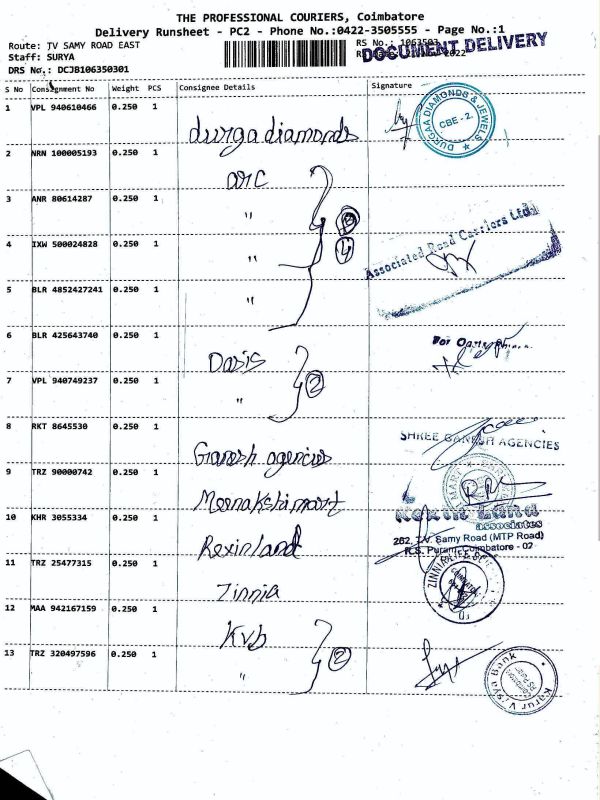 THE PROFESSIONAL COURIERS, Coimbatore
Delivery Runsheet - PC2 - Phone No.:0422-3505555 - Page No.:1
Route: TV SAMY ROAD EAST
RS No.: 1063503
DOCUMENT DELIVERY
Staff: SURYA
2022
DRS No.: DCJB106350301
S No Consignment No Weight PCS Consignee Details Signature
1 VPL 940610466 0.250 1 durga diamonds
DURGAA DIAMONDS & JEWELS
CBE - 2.
2 NRN 100005193 0.250 1 arc
3 ANR 80614287 0.250 1 "
4 IXW 500024828 0.250 1 " 4
Associated Road Carriers Ltd
5 BLR 4852427241 0.250 1 "
6 BLR 425643740 0.250 1 Dasis
For
7 VPL 940749237 0.250 1 " 2
8 RKT 8645530 0.250 1 Ganesh agencies
SHREE GANESH AGENCIES
9 TRZ 90000742 0.250 1 Meenakshi mart
MART
10 KHR 3055334 0.250 1 Rexinland
associates
262, T.V. Samy Road (MTP Road)
R.S. Puram, Coimbatore - 02
11 TRZ 25477315 0.250 1 Zinnia
ZINNIA
12 MAA 942167159 0.250 1 Kvb
13 TRZ 320497596 0.250 1 " 2
Karur Vysya Bank